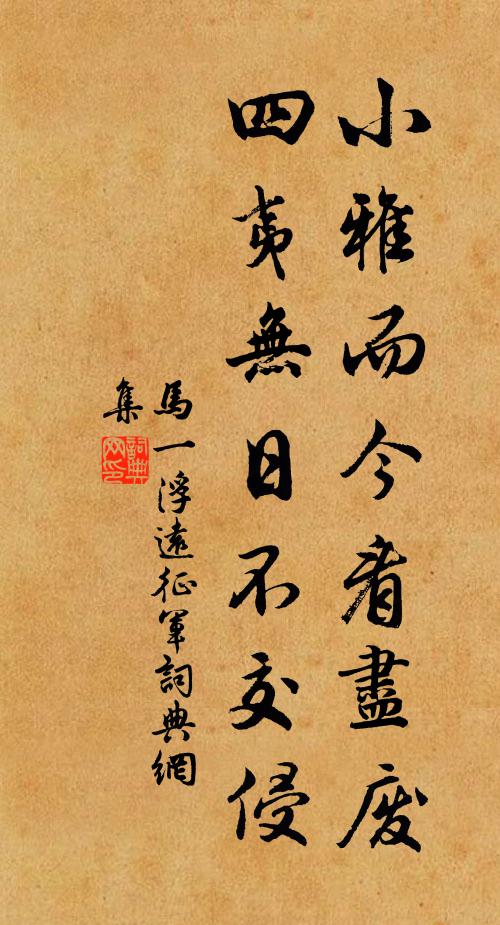 小雅而今看盡廢
四夷無日不交侵
馬一浮遠征軍詞典網
集
詞典網印